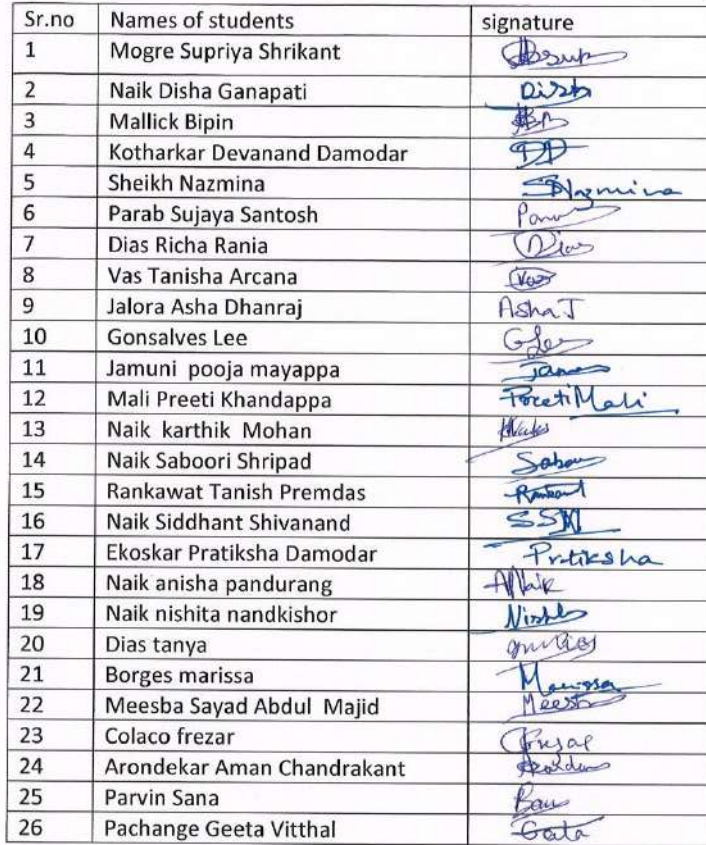 Sr.no Names of students signature
1 Mogre Supriya Shrikant
2 Naik Disha Ganapati Disha
3 Mallick Bipin
4 Kotharkar Devanand Damodar DD
5 Sheikh Nazmina SNazmina
6 Parab Sujaya Santosh
7 Dias Richa Rania Dias
8 Vas Tanisha Arcana Vas
9 Jalora Asha Dhanraj Asha J
10 Gonsalves Lee GLee
11 Jamuni pooja mayappa
12 Mali Preeti Khandappa Preeti Mali
13 Naik karthik Mohan
14 Naik Saboori Shripad
15 Rankawat Tanish Premdas
16 Naik Siddhant Shivanand SSN
17 Ekoskar Pratiksha Damodar Pratiksha
18 Naik anisha pandurang ANaik
19 Naik nishita nandkishor
20 Dias tanya
21 Borges marissa Marissa
22 Meesba Sayad Abdul Majid
23 Colaco frezar
24 Arondekar Aman Chandrakant
25 Parvin Sana
26 Pachange Geeta Vitthal Geeta